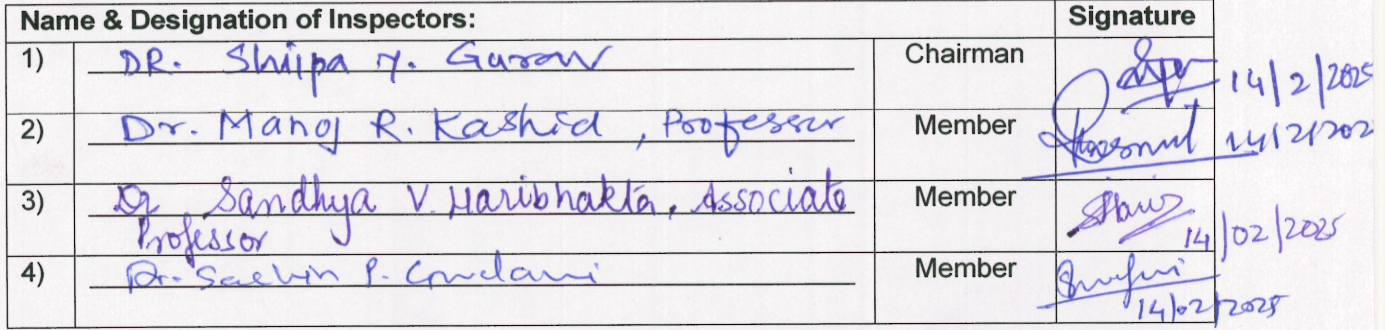 Name & Designation of Inspectors: Signature
1) DR. Shilpa Y. Gurav Chairman 14/2/2025
2) Dr. Manoj R. Kashid, Professor Member 14/2/202
3) Dr Sandhya V. Haribhakta, Associate Member
Professor 14/02/2025
4) Dr. Sachin P. Member
14/02/2025